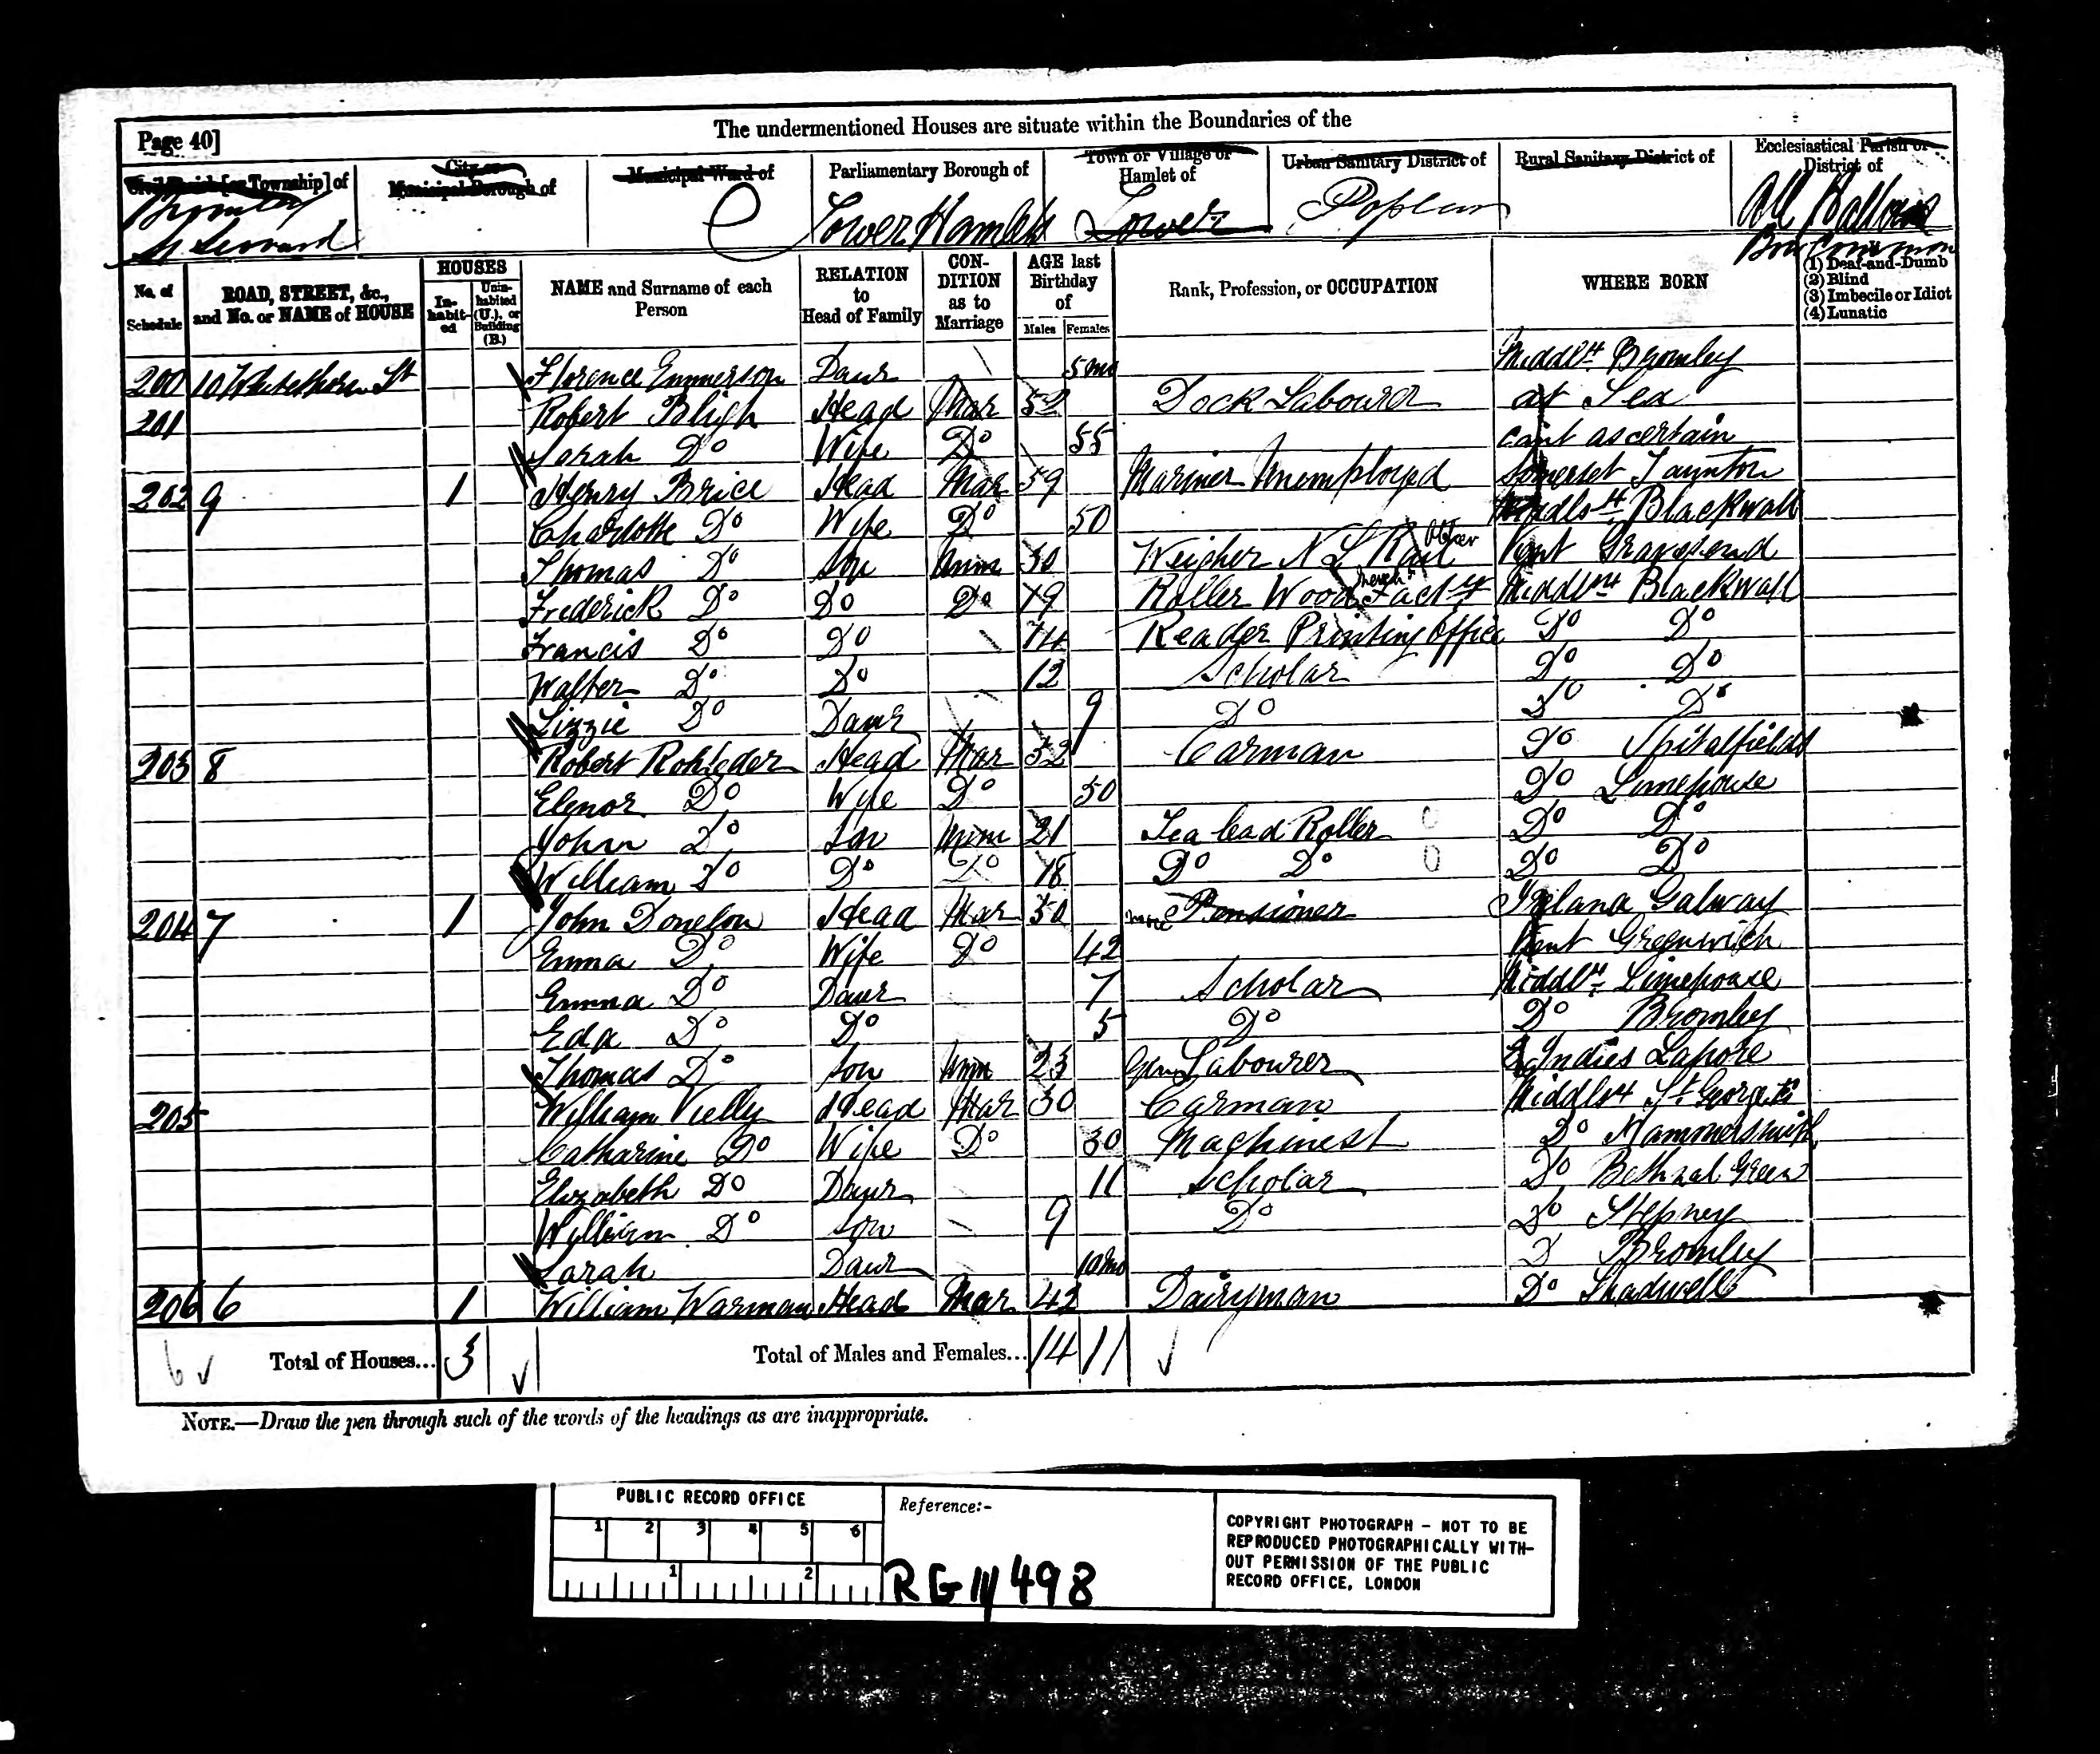 The undermentioned Houses are situate within the Boundaries of the
Page 40]
Civil Parish [or Township] of
City or Municipal Borough of
Municipal Ward of
Parliamentary Borough of
Town or Village or Hamlet of
Urban Sanitary District of
Rural Sanitary District of
Ecclesiastical Parish or District of
Bromley St Leonard
Tower Hamlets
Tower
Poplar
All Hallows Bow Common
No. of Schedule
ROAD, STREET, &c., and No. or NAME of HOUSE
HOUSES
In-habit-ed
Unin-habited (U.), or Building (B.)
NAME and Surname of each Person
RELATION to Head of Family
CON-DITION as to Marriage
AGE last Birthday of
Males
Females
Rank, Profession, or OCCUPATION
WHERE BORN
(1) Deaf-and-Dumb
(2) Blind
(3) Imbecile or Idiot
(4) Lunatic
200 10 St Florence Emmerson Daur 5mo Middlx Bromley
201 Robert Bligh Head Mar 52 Dock Labourer at Sea
Sarah Do Wife Do 55 cant ascertain
202 9 1 Henry Brice Head Mar 59 Mariner Unemployed Somerset Taynton
Charlotte Do Wife Do 50 Middlsx Blackwall
Thomas Do Son Unm 30 Weigher N L Rail Kent Gravesend
Frederick Do Do Do 19 Roller Wood Facty Middlsx Blackwall
Francis Do Do 14 Reader Printing Office Do Do
Walter Do Do 12 Scholar Do Do
Lizzie Do Daur 9 Do Do Do
203 8 Robert Rohleder Head Mar 52 Carman Do Spitalfields
Elenor Do Wife Do 50 Do Limehouse
John Do Son Unm 21 Tea lead Roller Do Do
William Do Do Do 18 Do Do Do Do
204 7 1 John Donelon Head Mar 50 Pensioner Ireland Galway
Emma Do Wife Do 42 Kent Greenwich
Emma Do Daur 7 Scholar Middlx Limehouse
Eda Do Do 5 Do Do Bromley
Thomas Do Son Unm 23 Gen Labourer E Indies Lahore
205 William Vielly Head Mar 30 Carman Middlsx St Georges
Catharine Do Wife Do 30 Machinest Do Hammersmith
Elizabeth Do Daur 11 Scholar Do Bethnal Green
William Do Son 9 Do Do Stepney
Sarah Daur 10mo D Bromley
206 6 1 William Warman Head Mar 42 Dairyman Do Shadwell
6 Total of Houses... 3
Total of Males and Females... 14 11
NOTE.—Draw the pen through such of the words of the headings as are inappropriate.
PUBLIC RECORD OFFICE
1 2 3 4 5 6
1 2
Reference:-
RG 11/498
COPYRIGHT PHOTOGRAPH - NOT TO BE
REPRODUCED PHOTOGRAPHICALLY WITH-
OUT PERMISSION OF THE PUBLIC
RECORD OFFICE, LONDON